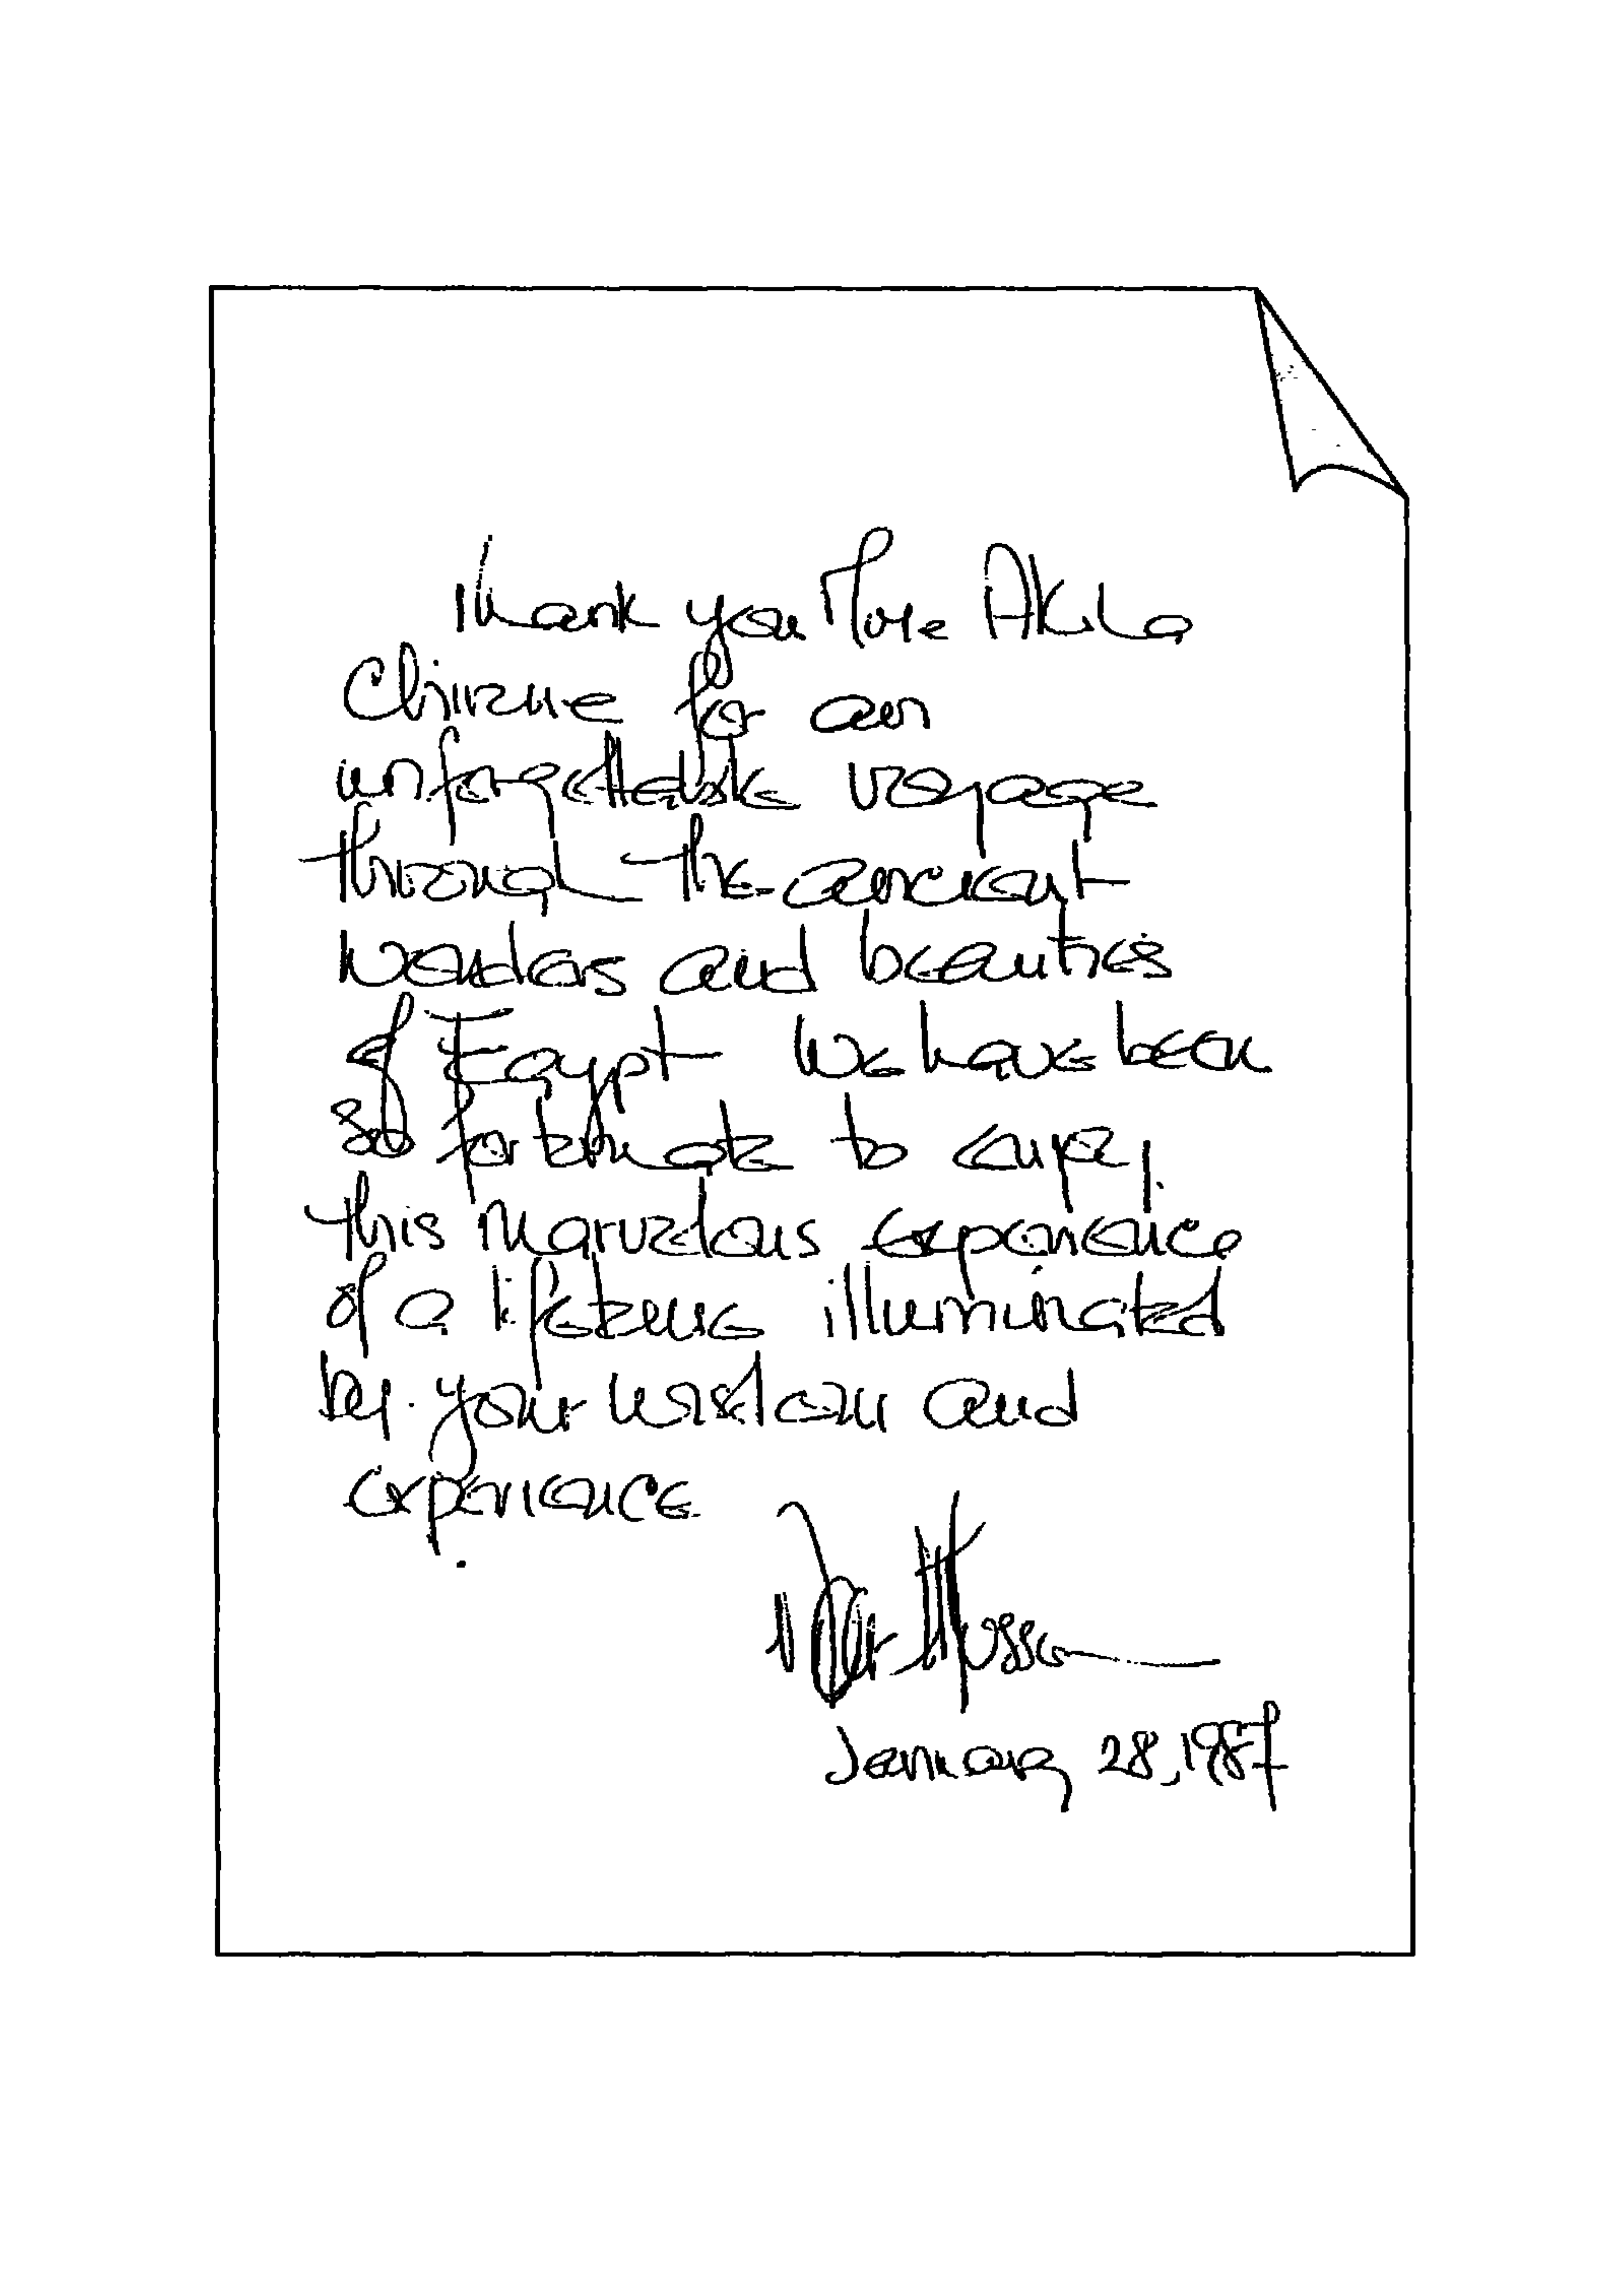 Thank you Mme Akila
Chirine for an
unforgettable voyage
through the ancient
wonders and beauties
of Egypt We have been
so fortunate to enjoy
this marvelous experience
of a lifetime illuminated
by your wisdom and
experience.
January 28, 1987